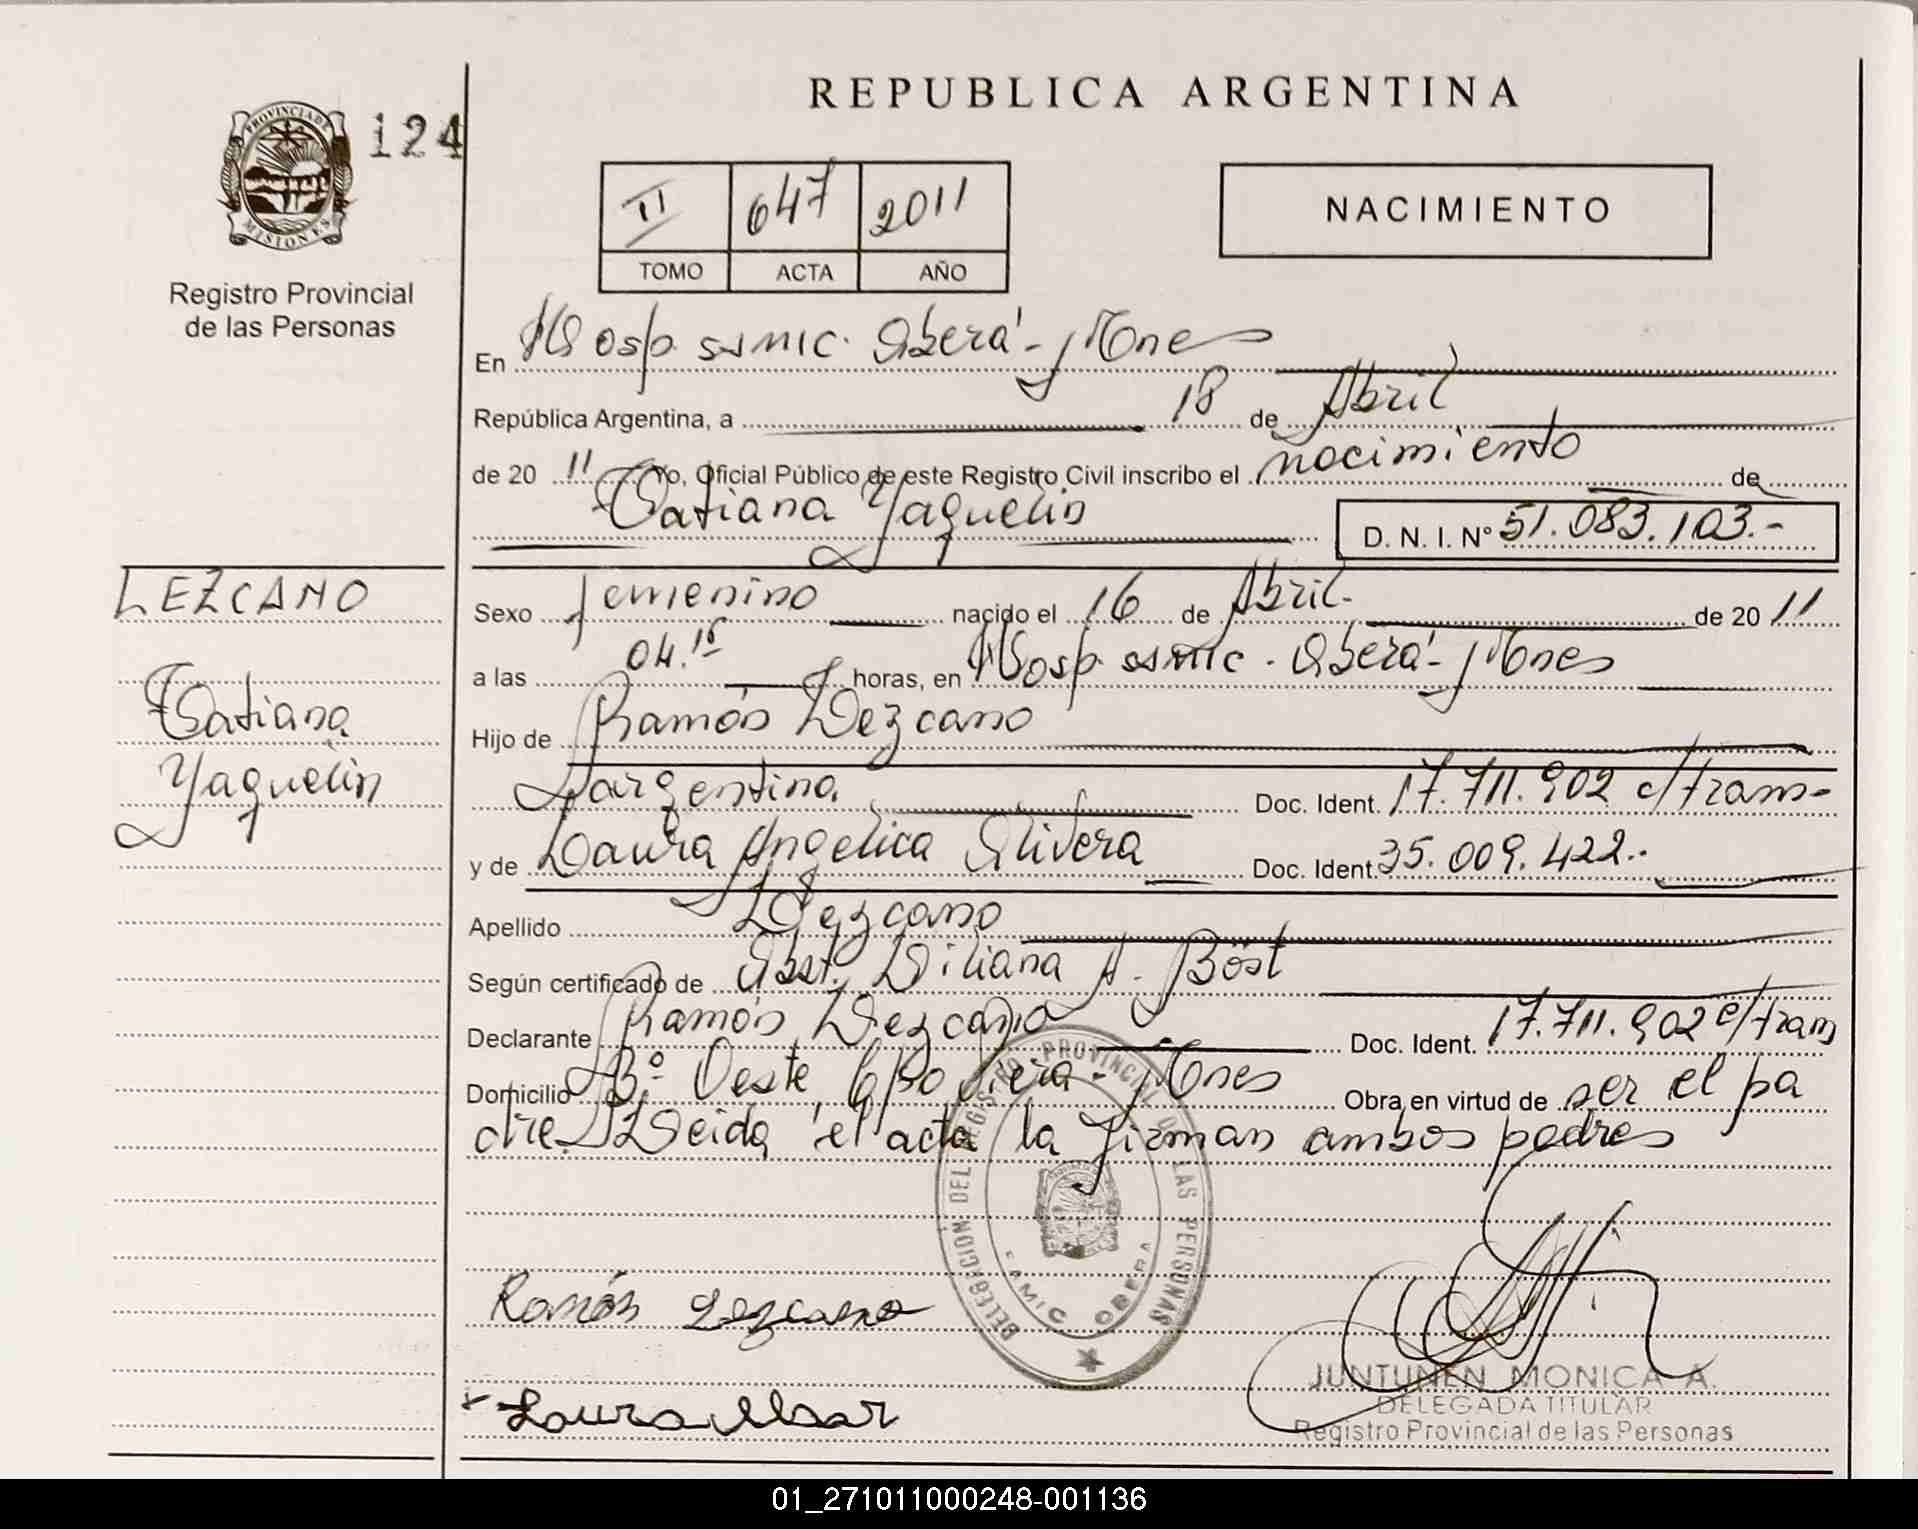 REPUBLICA ARGENTINA
PROVINCIA DE
MISIONES
124
Registro Provincial
de las Personas
II 647 2011
TOMO ACTA AÑO
NACIMIENTO
En Hosp. samic. Oberá - Mnes
República Argentina, a 18 de Abril
de 20 11 Yo, Oficial Público de este Registro Civil inscribo el nacimiento de
Tatiana Yaquelin
D. N. I. Nº 51.083.103.-
LEZCANO
Tatiana
Yaquelin
Sexo femenino nacido el 16 de Abril. de 20 11
a las 04.15 horas, en Hosp. samic. Oberá - Mnes
Hijo de Ramón Lezcano
argentina Doc. Ident. 17.711.902 c/tram-
y de Laura Angelica Olivera Doc. Ident. 35.009.422.-
Apellido Lezcano
Según certificado de Obst. Liliana A. Böst
Declarante Ramón Lezcano Doc. Ident. 17.711.902 c/tram
Domicilio Bº Oeste, Mnes Obra en virtud de ser el pa
dre. Leida el acta la firman ambos padres
DELEGACIÓN DEL REGISTRO PROVINCIAL DE LAS PERSONAS
SAMIC OBERA
Ramón Lezcano
Laura
JUNTUNEN MONICA A.
DELEGADA TITULAR
Registro Provincial de las Personas
01_271011000248-001136